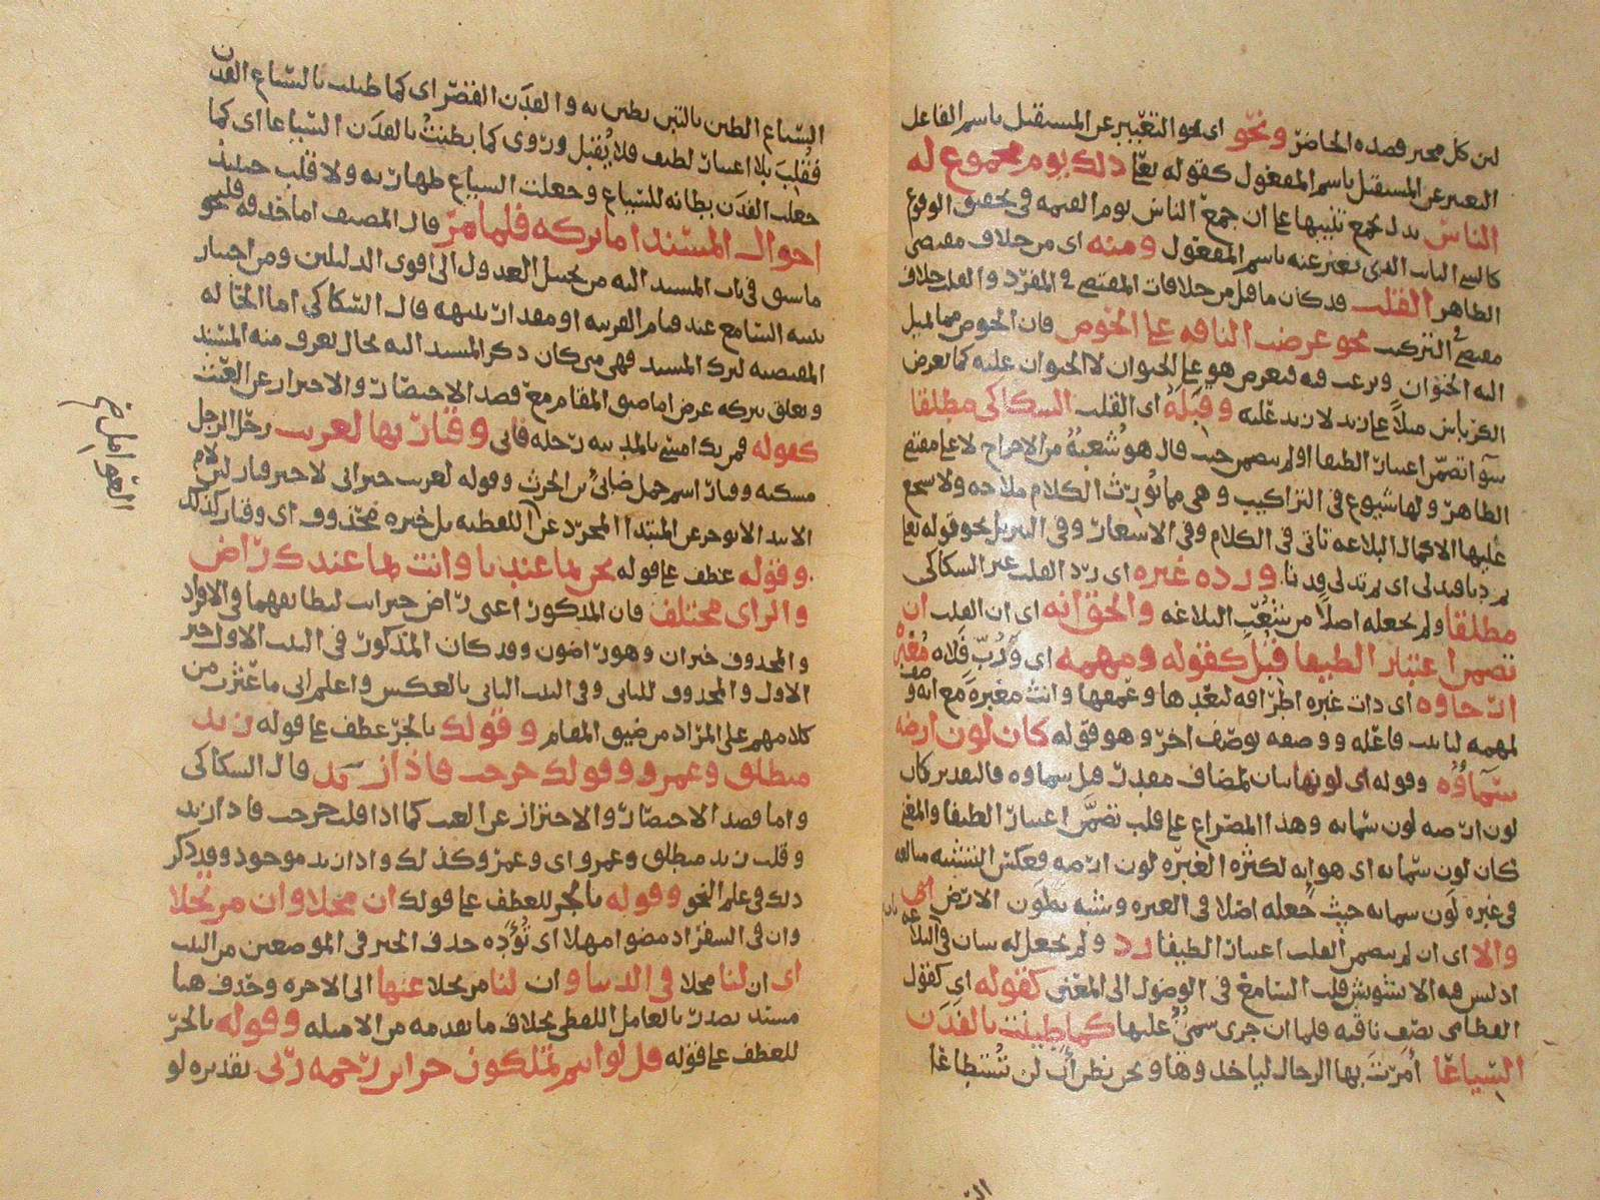 لمن كل مخبر قصده الحاضر ونحو اى نحو التعبير عن المستقبل باسم الفاعل
التعبير عن المستقبل باسم المفعول كقوله تعا ذلك يوم مجموع له
الناس بدل يجمع تنبيها على ان جمع الناس يوم القيمه فى تحقق الوقوع
الذى يعبر عنه باسم المفعول ومنه اى من خلاف مقتضى
الظاهر القلب قد كان ما قبل من خلافات المقتضى فى المفرد والقلب خلاف
مقتضى التركيب نحو عرضت الناقه على الحوض فان الحوض مما لميل
اليه الحيوان ويرغب فيه فيعرض هو على الحيوان لا الحيوان عليه كما يعرض
على زيد لا زيد عليه وقبله اى القلب السكاكى مطلقا
سوآ تضمن اعتبارا لطيفا او لم يتضمن حيث قال هو شعبة من الاخراج لا على مقتضى
الظاهر ولها شيوع فى التراكيب وهى مما تورث الكلام ملاحه ولا يشجع
عليها الا كمال البلاغه تأتى فى الكلام وفى الاشعار وفى التنزيل نحو قوله تعا
ورده غيره اى رد القلب غير السكاكى
مطلقا ولم يجعله اصلا من شعب البلاغه والحق انه اى ان القلب ان
تضمن اعتبارا لطيفا قبل كقوله ومهمه اى ورب فلاة مغبرة
ارجاوه اى ذات غبره اطرافه لبعدها وعمقها وانث مغبرة مع انه
لمهمه وصفه بوصف اخر وهو قوله كان لون ارضه
سماؤه وقوله اى لونها بيان لمضاف مقدر قبل سماوه فالتقدير كان
لون ارضه لون سمايه وهذا المصراع على قلب تضمن اعتبارا لطيفا والمعنى
كان لون سمايه اى هوايه لكثرة الغبره لون ارضه فعكس التشبيه مبالغه
فى غبره لون سمايه حيث جعله اصلا فى الغبره وشبه بها لون الارض اى
والا اى ان لم يتضمن القلب اعتبارا لطيفا رد ولم يجعل له شان فى البلاغه
اذ ليس فيه الا تشويش قلب السامع فى الوصول الى المعنى كقوله اى كقول
القطامى يصف ناقه فلما ان جرى سمن عليها كما طينت بالفدن
السياعا أمرت بها الرجال لياخذوها ونحن نظن أن لن تستطاعا
السياع الطين بالتبن يطين به والفدن القصر اى كما طينت بالسياع الفدن
فقلب بلا اعتبار لطيف فلا يقبل وروى كما بطنت بالفدن السياعا اى كما
جعلت الفدن بطانة للسياع وجعلت السياع ظهارة به ولا قلب حينئذ
احوال المسند اما تركه فلما مر قال المصنف اما حذفه فلنحو
ما سبق فى باب المسند اليه من تخييل العدول الى اقوى الدليلين ومن اختبار
تنبه السامع عند قيام القرينه او مقدار تنبهه قال السكاكى اما الحاله
المقتضيه لترك المسند فهى متى كان ذكر المسند اليه بحال يعرف منه المسند
وتعلق بتركه غرض اما ضيق المقام مع قصد الاختصار والاحتراز عن العبث
كقوله فمن يك امسى بالمدينه رحله فانى وقيار بها لغريب رحل الرجل
مسكنه وقيار اسم جمل ضابئ بن الحرث وقوله لغريب خبر انى لا خبر قيار لان لام
الابتدا لا يوخر عن المبتدا المجرد عن اللفظيه بل خبره محذوف اى وقيار كذلك
وقوله عطف على قوله نحن بما عندنا وانت بما عندك راض
والراى مختلف فان المذكور اعنى راض خبر انت لتطابقهما فى الافراد
والمحذوف خبر ان وهو راضون وقد كان المذكور فى البيت الاول خبر
الاول والمحذوف للثانى وفى البيت الثانى بالعكس واعلم انى ما عثرت من
كلامهم على المراد من ضيق المقام وقولك بالجر عطف على قوله زيد
منطلق وعمرو وقولك خرجت فاذا زيد قال السكاكى
واما قصد الاختصار والاحتراز عن العبث كما اذا قلت خرجت فاذا زيد
وقلت زيد منطلق وعمرو اى وعمرو كذلك واذا زيد موجود وقد ذكر
ذلك فى علم النحو وقوله بالجر للعطف على قولك ان محلا وان مرتحلا
وان فى السفر اذ مضوا مهلا اى تؤده حذف الخبر فى الموضعين من البيت
اى ان لنا محلا فى الدنيا وان لنا مرتحلا عنها الى الاخره وحذف هنا
مسند بالعامل اللفظى بخلاف ما تقدمه من الامثله وقوله بالجر
للعطف على قوله قل لو انتم تملكون خزاين رحمه ربى تقديره لو